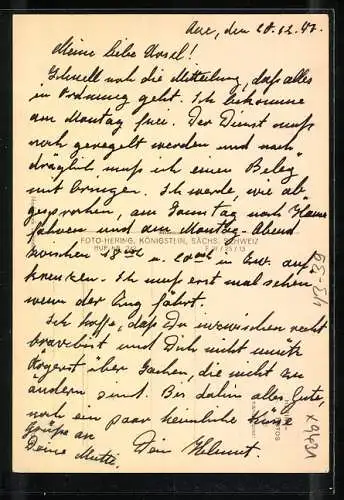 Aue, den 28.12.47.
Meine liebe Ursel!
Schnell noch die Mitteilung, daß alles
in Ordnung geht. Ich bekomme
am Montag frei. Der Dienst muß
noch geregelt werden und nach
träglich muß ich einen Beleg
mit bringen. Ich werde, wie ab
gesprochen, am Sonntag nach Hause
fahren und am Montag-Abend
FOTO-HERING, KÖNIGSTEIN, SÄCHS. SCHWEIZ
zwischen 18 00 u. 20 00 in auf
kreuzen. Ich muß erst mal sehen
wenn der Zug fährt.
Ich hoffe, daß Du inzwischen recht
brav bist und Dich nicht
ärgerst über Sachen, die nicht zu
ändern sind. Bis dahin alles Gute,
noch ein paar heimliche Küsse
Grüße an
Deine Mutti. Dein Helmut